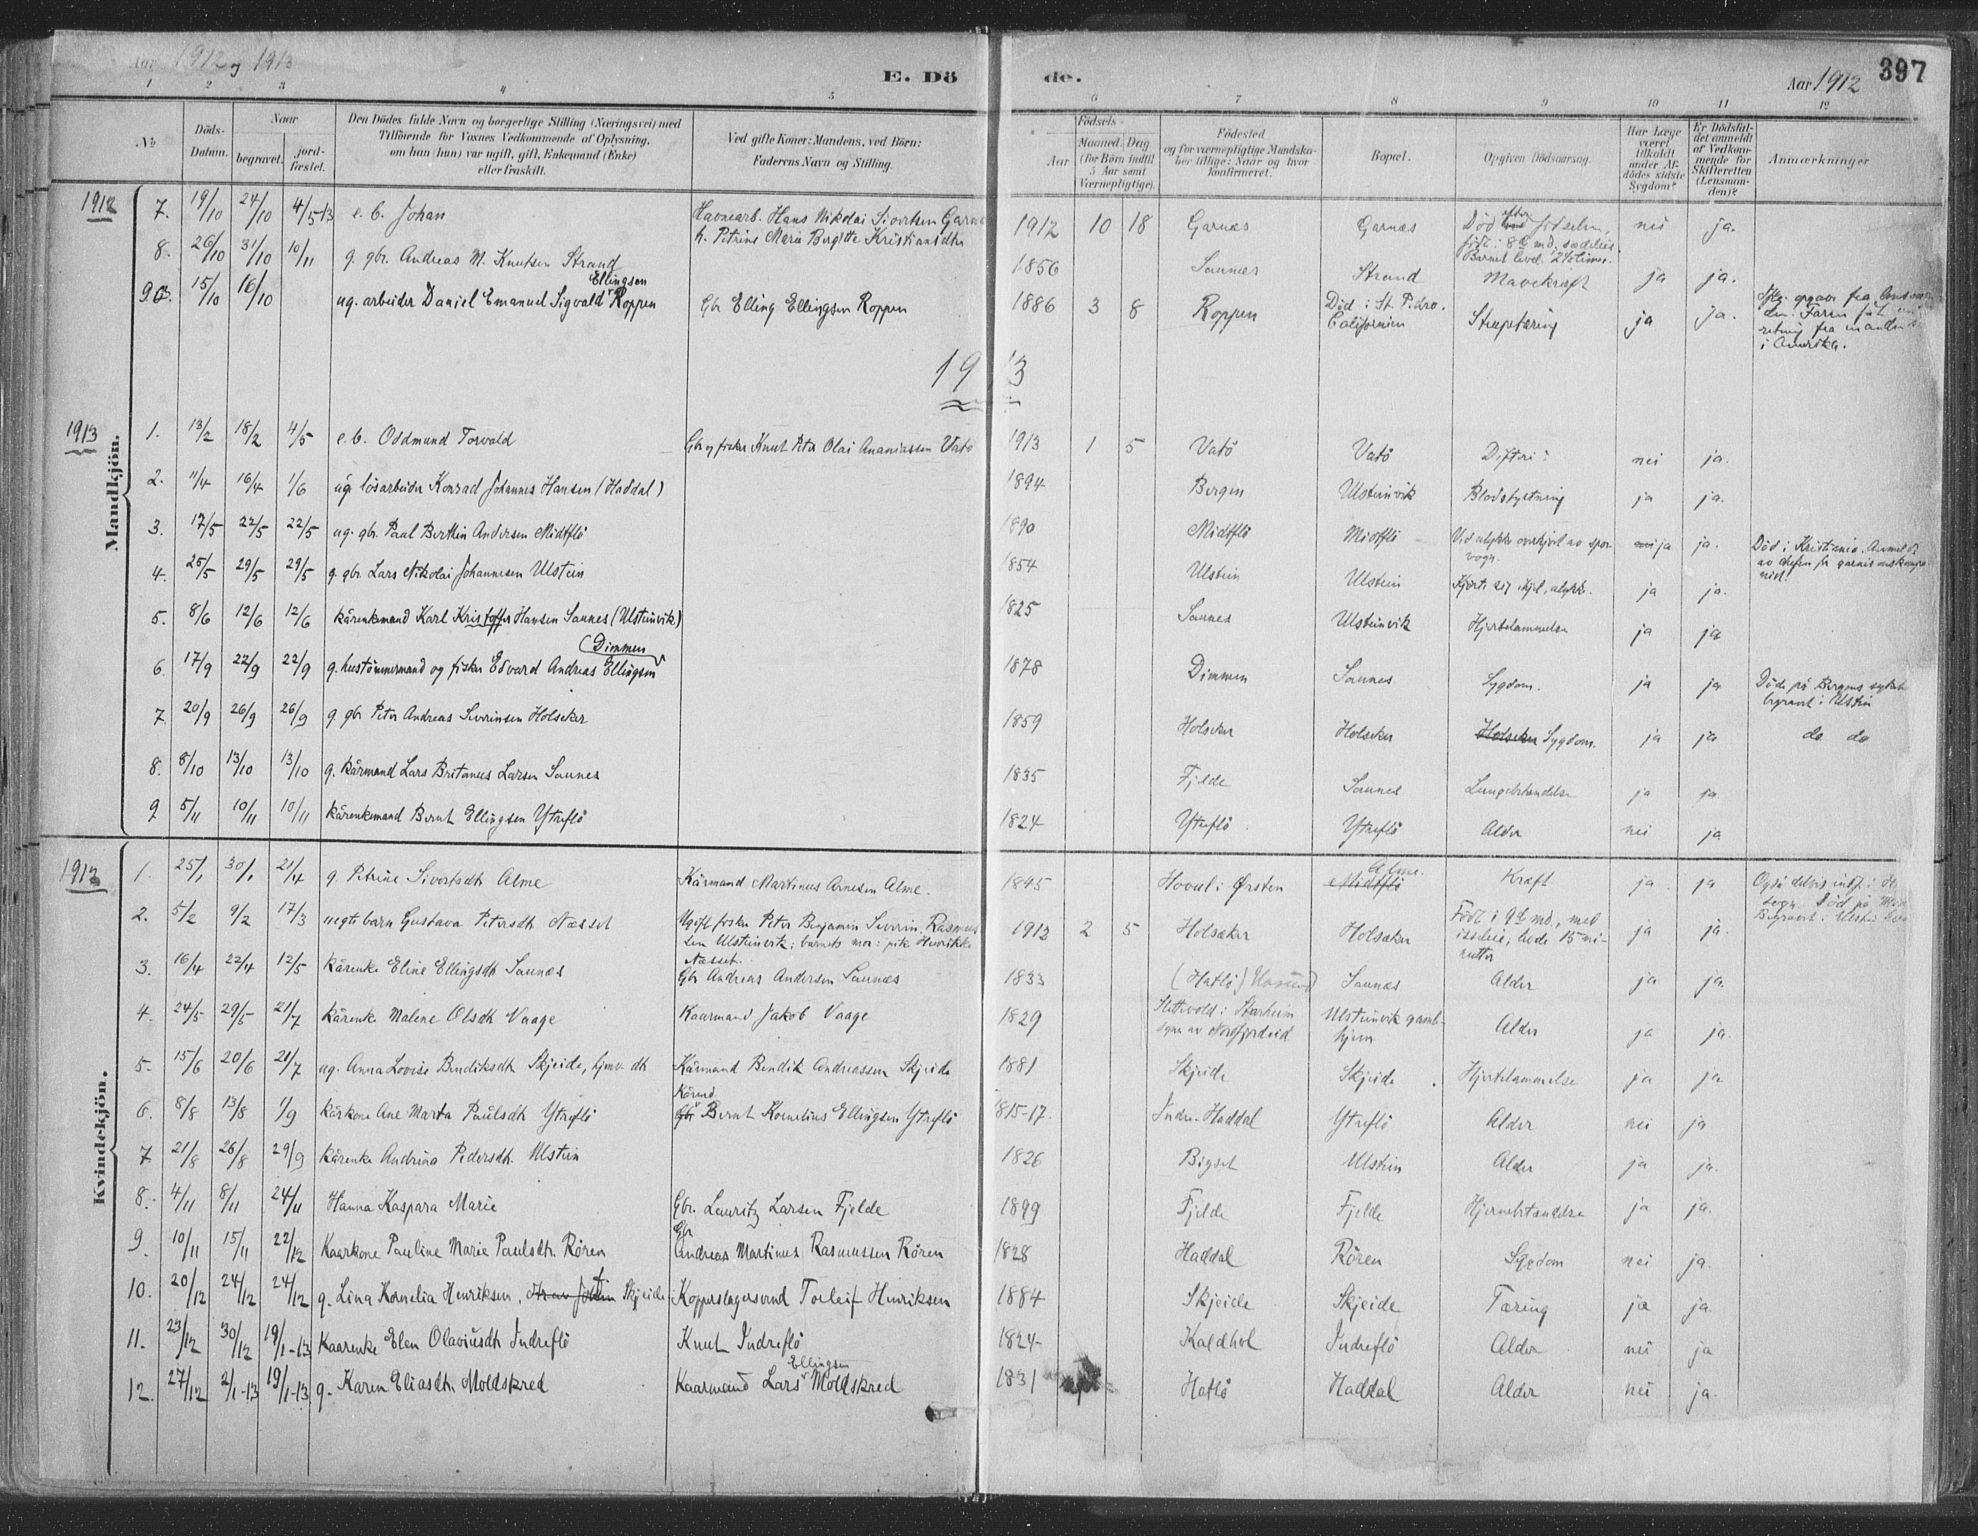 Aar 1912 og 1913
E. Dö de.
Aar 1912
397
1 2 3 4 5 6 7 8 9 10 11 12
No
Döds-Datum.
Naar
begravet.
jord-fæstet.
Den Dödes fulde Navn og borgerlige Stilling (Næringsvei) med
Tilföiende for Voxnes Vedkommende af Oplysning,
om han (hun) var ugift, gift, Enkemand (Enke)
eller fraskilt.
Ved gifte Koner: Mandens, ved Börn:
Faderens Navn og Stilling.
Födsels-
Aar
Maaned. Dag
(for Börn indtil
5 Aar samt
Værnepligtige).
Födested
og for værnepligtige Mandska-
ber tillige: Naar og hvor
konfirmeret.
Bopæl.
Opgiven Dödsaarsag.
Har Læge
været
tilkaldt
under Af-
dödes sidste
Sygdom?
Er Dödsfal-
det anmeldt
af Vedkom-
mende for
Skifteretten
(Lensman-
den)?
Anmærkninger
Mandkjön.
1912
7. 19/10 24/10 4/5 13 e.b. Johan Havnearb. Hans Nikolai Sivertsen Garnes 1912 10 18 Garnæs Garnæs Död efter födselen, nei ja.
h. Petrine Marie Bergitte Kristiansdtr
Barnet leved. 2½ timer.
8. 26/10 31/10 10/11 g. gbr. Andreas M. Knutsen Strand 1856 Saunes Strand Mavekræft ja ja.
Ellingsen
9. 15/10 16/10 ug. arbeider Daniel Emanuel Sigvald Roppen Gbr Elling Ellingsen Roppen 1886 3 8 Roppen Död i St. Pedro. Californien Strupetæring ja ja.
i Amerika.
1913
1913
1. 13/2 18/2 4/5 e.b. Oddmund Torvald Gbr og fisker Knut Peter Olai Ananiassen Vatö 1913 1 5 Vatö Vatö Difteri nei ja.
2. 11/4 16/4 1/6 ug. lösarbeider Konrad Johannes Hansen (Haddal) 1894 Bergen Ulsteinvik Blodstyrtning ja ja.
3. 17/5 22/5 22/5 ug. gbr. Paul Bertin Andersen Midtflö 1890 Midtflö Midtflö Ved ulykke overkjört av spor-vogn. nei ja ja. Död i Kristiania. Anmeldt
4. 25/5 29/5 29/5 g. gbr Lars Nikolai Johannesen Ulstein 1854 Ulstein Ulstein ja ja.
5. 8/6 12/6 12/6 kårenkemand Karl Kristoffer Hansen Saunes (Ulsteinvik) 1825 Saunes Ulsteinvik Hjertelammelse ja ja
(Dimmen
6 17/9 22/9 22/9 g. hustömmermand og fisker Edvard Andreas Ellingsen 1878 Dimmen Saunes Sygdom. ja ja Död på Bergens sykeh.
begravet i Ulstein
7. 20/9 26/9 26/9 g gbr Peter Andreas Severinsen Holseker 1859 Holseker Holseker Holseker Sygdom. ja ja do do
8. 8/10 13/10 13/10 g. kårmand Lars Britanus Larsen Saunes 1835 Fjelde Saunes Lungebetændelse ja ja
9 5/11 10/11 10/11 kårenkemand Bernt Ellingsen Ytreflö 1824 Ytreflö Ytreflö Alder nei ja
Kvindekjön.
1912
1. 25/1 30/1 21/4 g. Petrine Sivertsdtr Alme Kårmand Martinus Arnesen Alme. 1845 Hovset i Örsten Midtflö Alme. Kræft ja. ja
2. 5/2 9/2 17/3 uegte barn Gustava Petersdtr Næsset Ugift fisker Peter Benjamin Severin Rasmus-sen Ulsteinvik; barnets mor: pike Henrikke Næsset. 1912 2 5 Holsæker Holsæker Födt i 9de md, med issdeie, levde 15 mi-nutter ja ja.
3. 16/4 22/4 12/5 kårenke Eline Ellingsdtr Saunæs Gbr Andreas Andersen Saunæs 1833 (Hatlö) Saunæs Alder ja ja.
4. 24/5 29/5 21/7 kårenke Malene Olsdtr Vaage Kaarmand Jakob Vaage 1829 Ulsteinvik gamle-hjem Alder ja ja.
5. 15/6 20/6 21/7 ug. Anna Lovise Bendiksdtr Skjeide, hjmv. dtr Kårmand Bendik Andreassen Skjeide 1881 Skjeide Skjeide Hjertelammelse ja ja
6. 8/8 13/8 1/9 kårkone Ane Marta Paulsdtr Ytreflö Gbr Kårmd Bernt Kornelius Ellingsen Ytreflö 1815-17. Indre-Haddal Ytreflö Alder nei ja
7 21/8 26/8 29/9 kårenke Andrina Pedersdtr. Ulstein 1826 Bigset Ulstein Alder ja ja.
8. 4/11 8/11 24/11 Hanna Kaspara Marie Gbr. Lauritz Larsen Fjelde 1899 Fjelde Fjelde Hjernebetændelse ja ja.
9. 10/11 15/11 22/12 Kaarkone Pauline Marie Paulsdtr. Rören Gbr Andreas Martinus Rasmussen Rören 1828 Haddal Rören Sygdom nei ja.
10. 20/12 24/12 24/12 g. Lina Kornelia Henriksen, Skjeide Kopperslagersvend Torleif Henriksen 1884 Skjeide Skjeide Tæring ja ja.
11. 23/12 30/12 19/1-13 Kaarenke Elen Olaviusdtr Indreflö Knut Indreflö 1824 Kaldhol Indreflö Alder nei ja
Ellingsen
12. 27/12 2/1-13 19/1-13 g. Karen Eliasdtr. Moldskred Kaarmand Lars Moldskred 1831 Hatlö Haddal Alder nei ja.